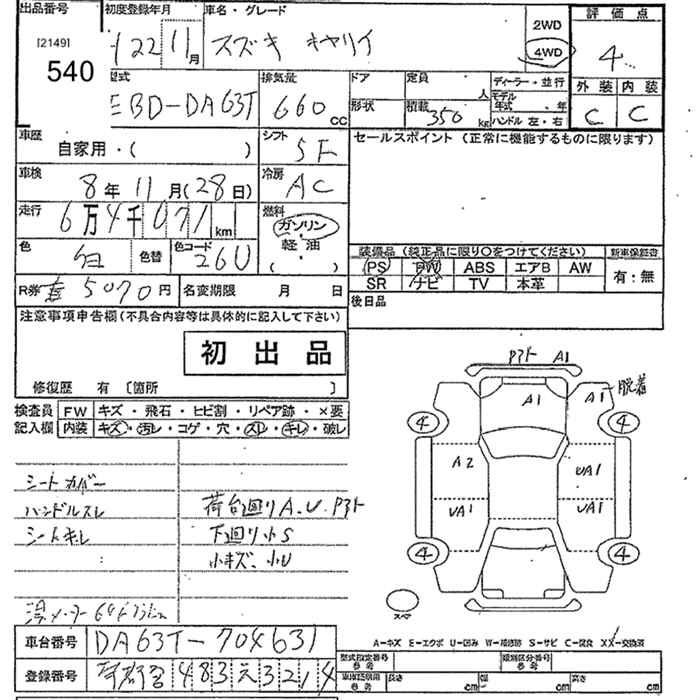 出品番号 初度登録年月 車名・グレード
[2149]
540
22 11月 スズキ キャリイ
2WD
4WD
評価点
4
型式 排気量 ドア 定員 人 ディーラー・並行
外装 内装
EBD-DA63T 660 CC 形状 積載 350 kg モデル年式 ・ 年
ハンドル 左・右
C C
車歴 自家用・( ) シフト 5F セールスポイント (正常に機能するものに限ります)
車検 8年 11月(28日) 冷房 AC
走行 6万4千071 km 燃料 ガソリン・軽油 ( )
色 白 色替 色コード 26U
装備品 (純正品に限り○をつけてください) 新車保証書
PS PW ABS エアB AW 有:無
SR ナビ TV 本革
R券 5070円 名変期限 月 日 後日品
注意事項申告欄(不具合内容等は具体的に記入して下さい)
初出品
修復歴 有 〔箇所 〕
検査員 FW キズ・飛石・ヒビ割・リペア跡・×要
記入欄 内装 キズ・汚レ・コゲ・穴・スレ・キレ・破レ
シートカバー
ハンドルスレ 荷台廻りA.U.P3ト
シートキレ 下廻り小S
小キズ、小U
P3ト A1
A1 A1 脱着
4 4
A2 UA1
UA1 UA1
4 4
スペア
A-キズ E-エクボ U-凹み W-補修跡 S-サビ C-腐食 XX-交換済
車台番号 DA63T-704631
型式指定番号 参考 類別区分番号 参考
登録番号 483え3214
車体説明用 参考 長さ cm 幅 cm 高さ cm